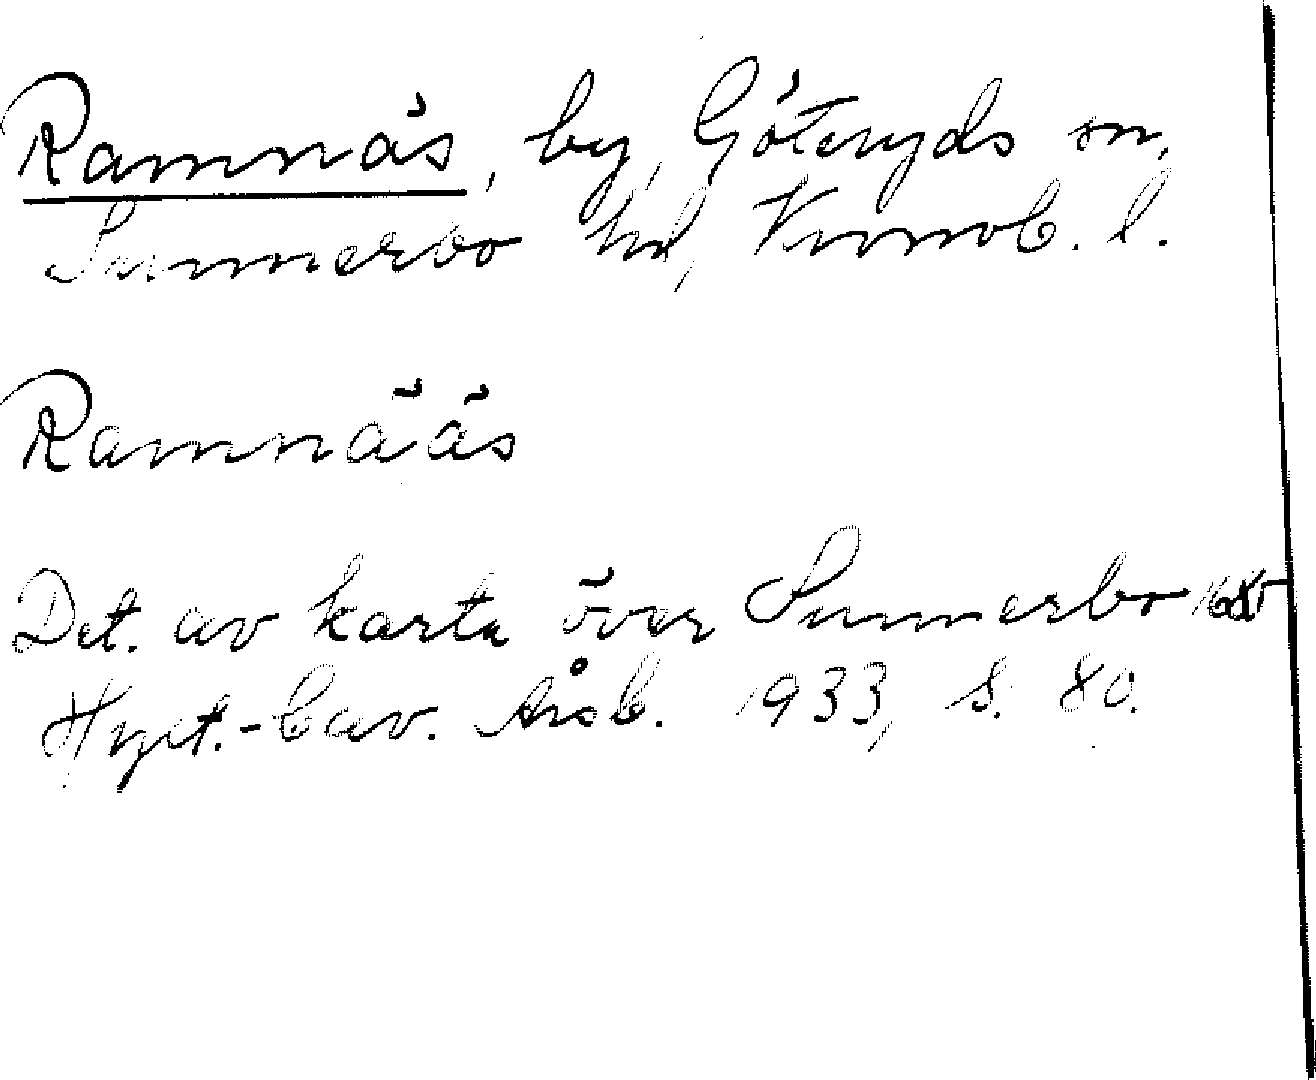 Ramnäs, by, Göteryds sn,
Sunnerbo hd, Kronob. l.
Ramnääs
Det. av karta över Sunnerbo
Hylt.-Cav. Årsb. 1933, s. 80.